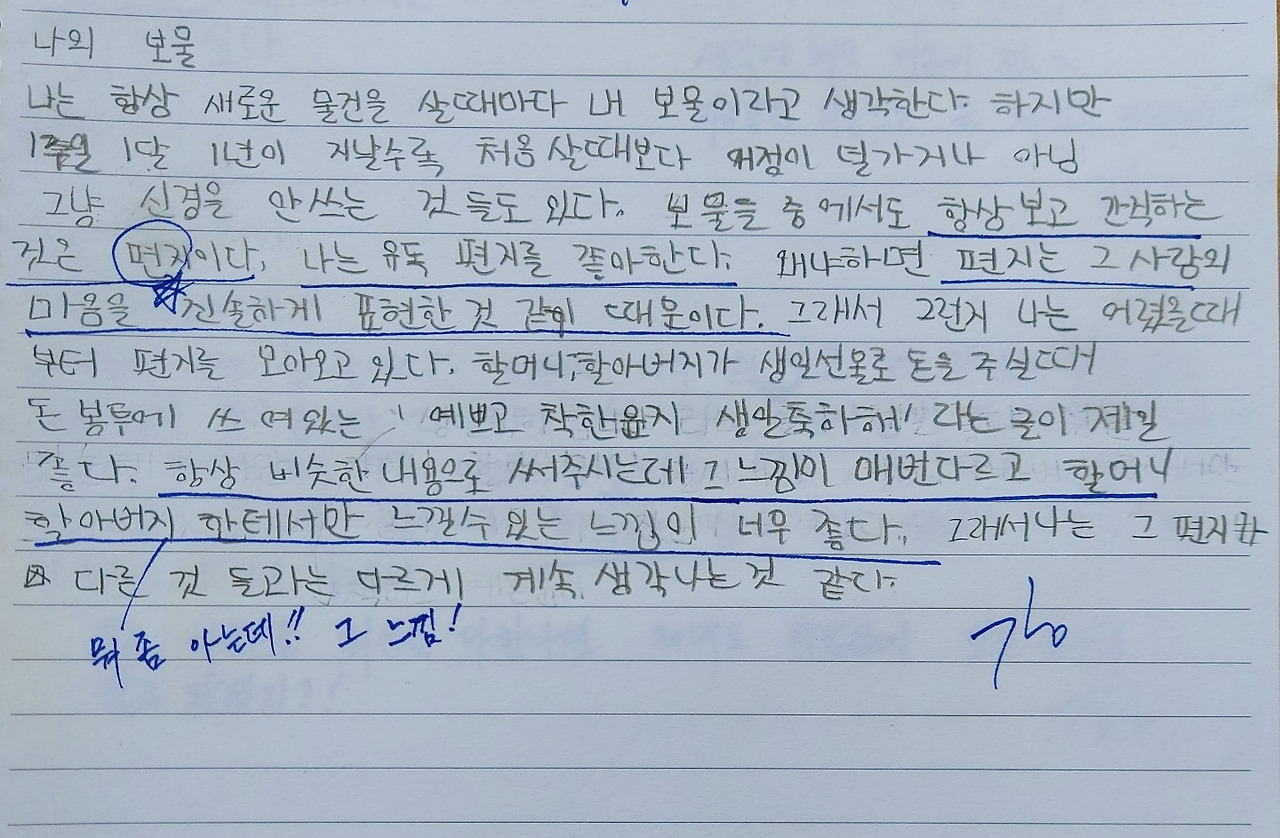 나의 보물
나는 항상 새로운 물건을 살때마다 내 보물이라고 생각한다. 하지만
1주일 1달 1년이 지날수록 처음살때보다 덜가거나 아님
그냥 신경을 안쓰는 것 들도 있다. 보물들 중에서도 항상보고 간직하는
것은 편지이다. 나는 유독 편지를 좋아한다. 왜냐하면 편지는 그 사람의
마음을 진솔하게 표현한 것 같기 때문이다. 그래서 그런지 나는 어렸을때
부터 편지를 모아오고 있다. 할머니, 할아버지가 생일선물로 돈을 주실때
돈 봉투에 쓰여있는 '예쁘고 착한윤지 생일축하해' 라는 글이 제일
좋다. 항상 비슷한 내용으로 써주시는데 그 느낌이 매번다르고 할머니
할아버지 한테서만 느낄수 있는 느낌이 너무 좋다. 그래서나는 그 편지가
다른 것 들과는 다르게 계속 생각나는것 같다.
뭐 좀 아는데!! 그 느낌!